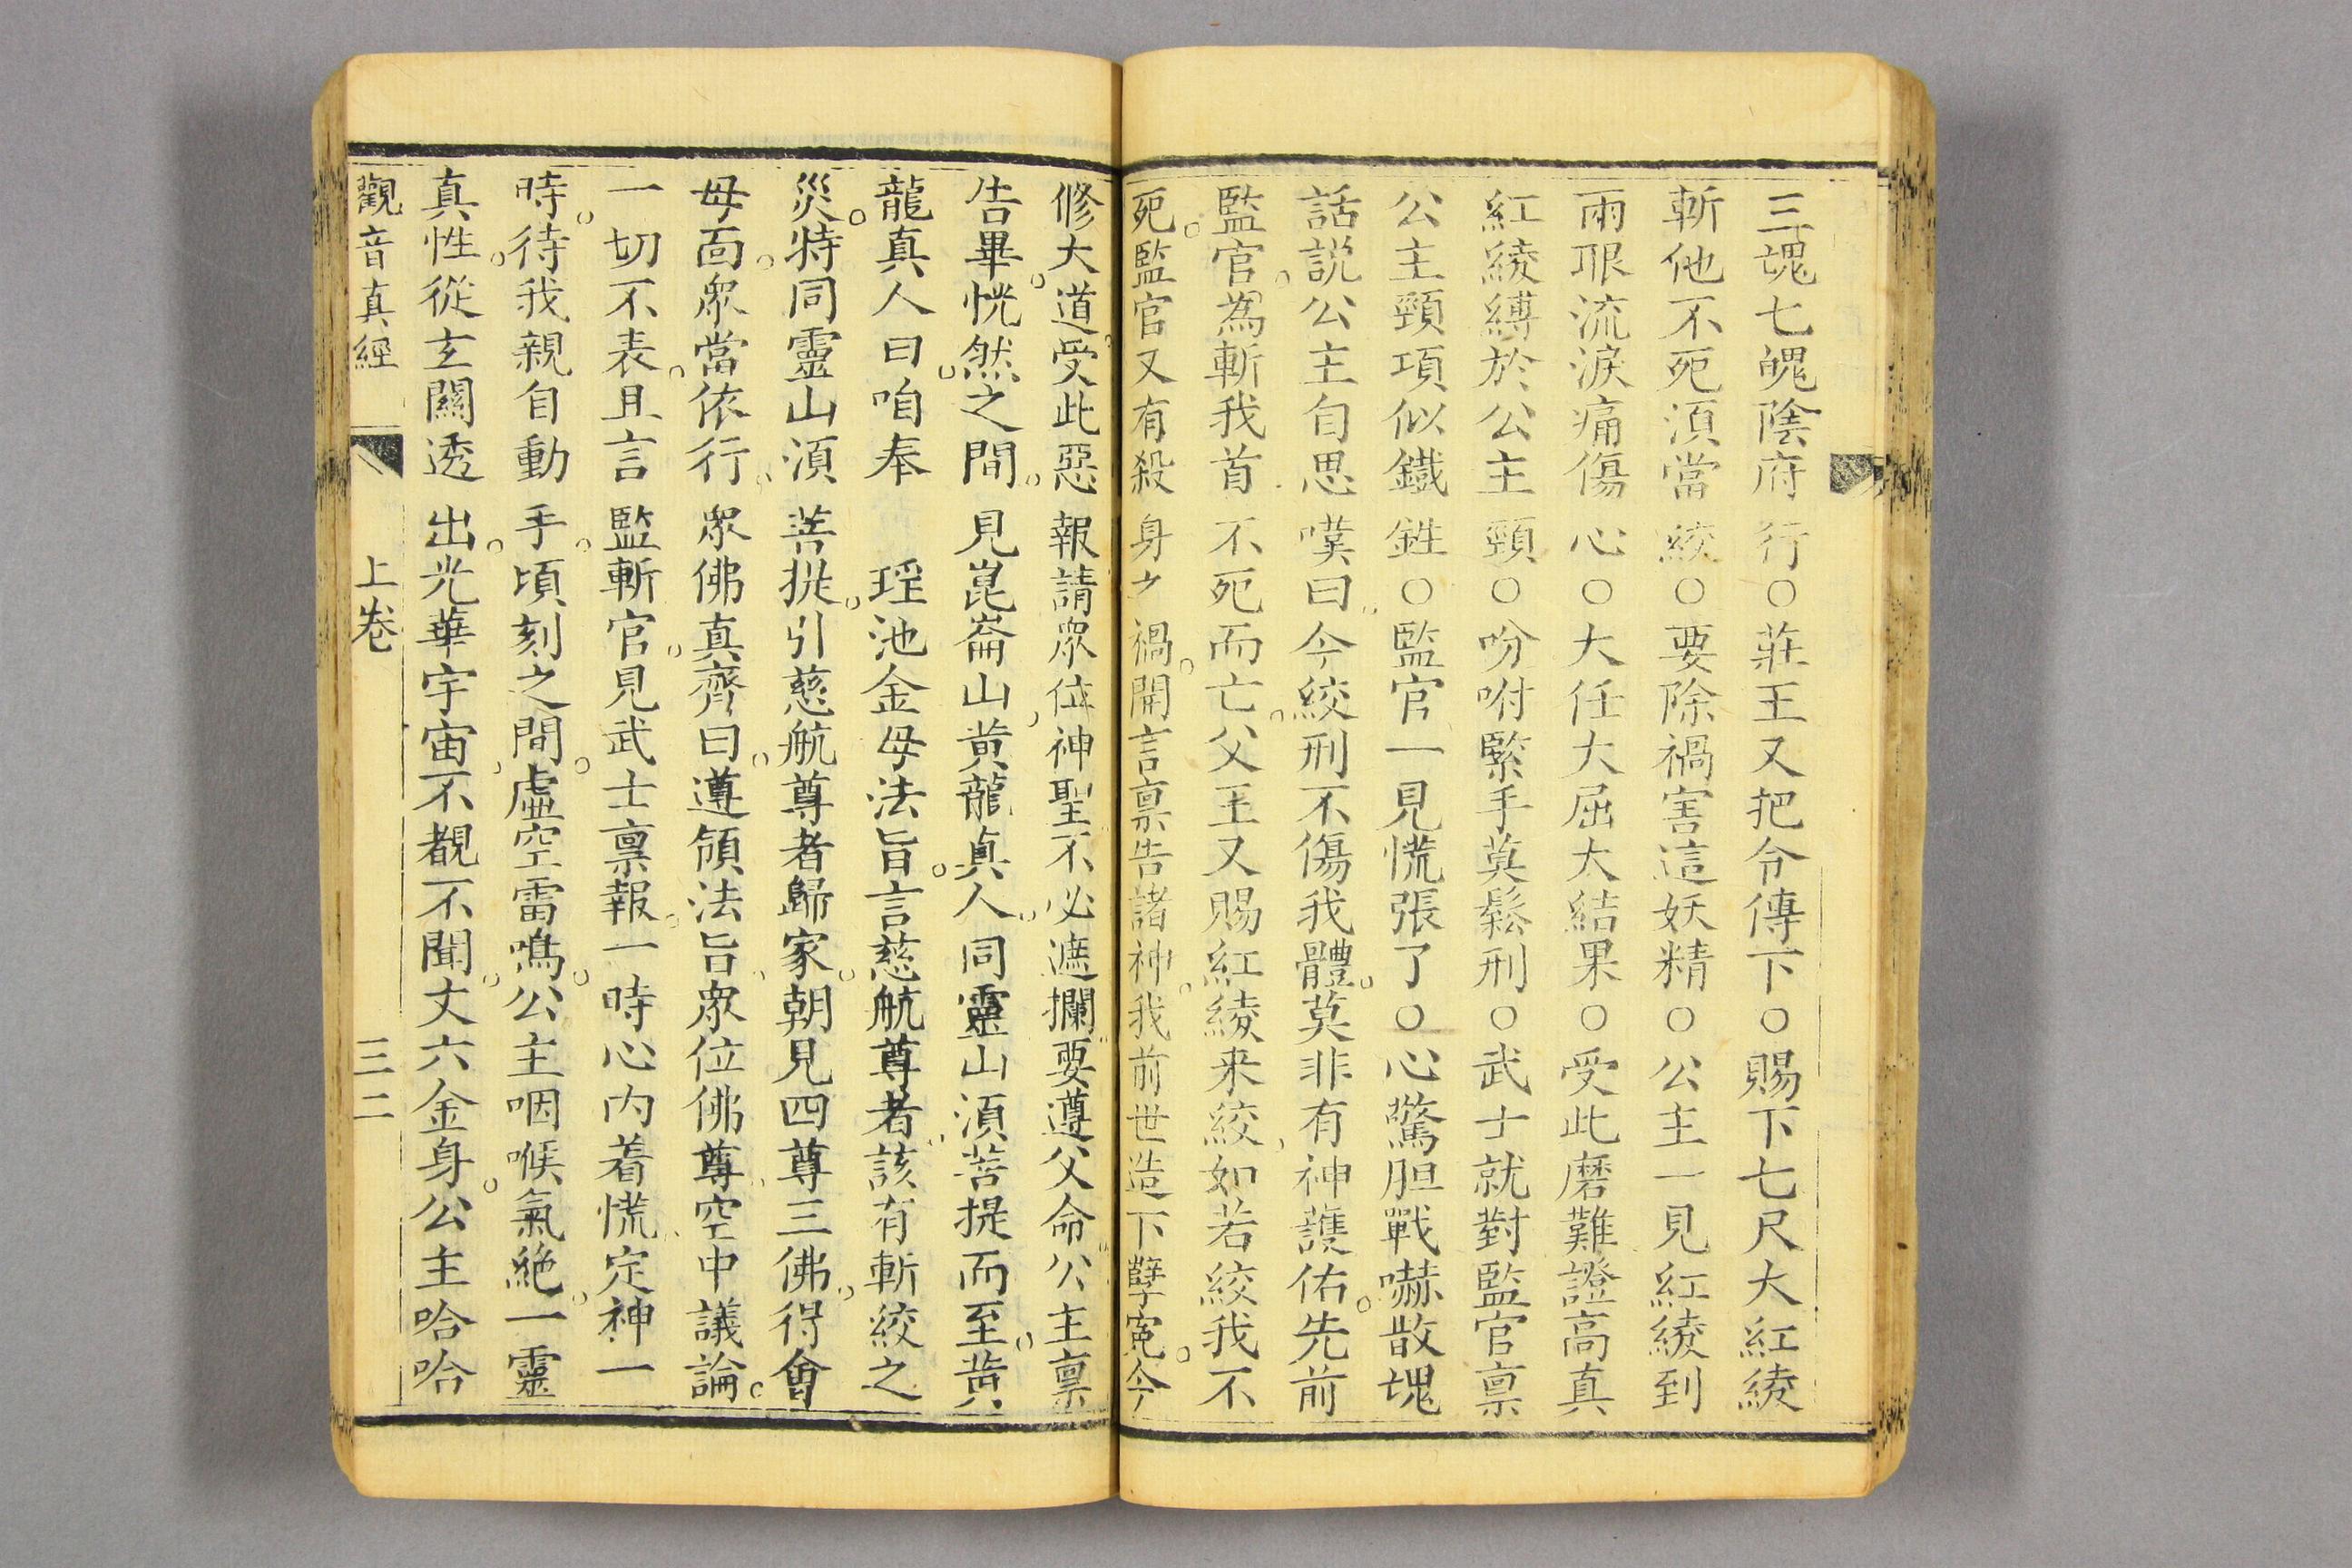 三魂七魄陰府行○莊王又把令傳下○賜下七尺大紅綾
斬他不死須當絞○要除禍害這妖精○公主一見紅綾到
兩眼流淚痛傷心○大任大屈大結果○受此磨難證高真
紅綾縛於公主頸○吩咐緊手莫鬆刑○武士就對監官禀
公主頸項似鐵鉎○監官一見慌張了○心驚胆戰嚇散魂
話説公主自思嘆曰今絞刑不傷我體。莫非有神護佑。先前
監官。為斬我首不死而亡。父王又賜紅綾来絞如若絞我不
死。監官又有殺身之禍。開言禀告諸神。我前世造下孽冤。今
修大道受此惡報請眾位神聖不必遮攔要遵父命公主禀
告畢。恍然之間。見崑崙山黄龍真人。同靈山須菩提而至。黄
龍真人曰咱奉瑶池金母法旨。言慈航尊者該有斬絞之
災。特同靈山須菩提。引慈航尊者歸家。朝見四尊三佛。得會
母面。眾當依行。眾佛真齊曰。遵領法旨。眾位佛尊空中議論。
一切不表。且言監斬官。見武士禀報。一時心内着慌。定神一
時。待我親自動手。頃刻之間。虛空雷鳴。公主咽喉氣絶。一靈
真性。從玄關透出。光華宇宙。不覩不聞。丈六金身。公主哈哈
觀音真經 上卷 三二